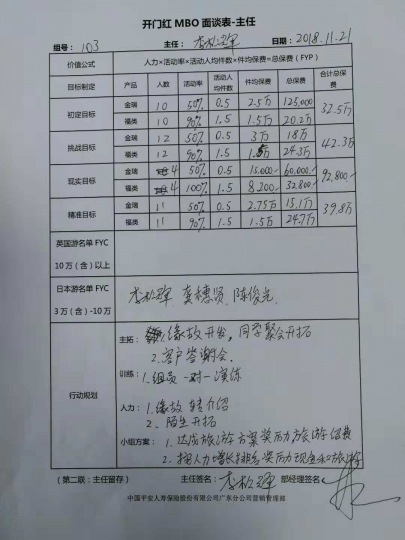 开门红 MBO 面谈表-主任
组号： 103 主任： 李松辉 日期：2018.11.21
价值公式 人力×活动率×活动人均件数×件均保费=总保费（FYP）
目标制定 产品 人数 活动率 活动人均件数 件均保费 总保费 合计总保费
初定目标 金瑞 10 50% 0.5 2.5万 125,000 32.5万
福类 10 90% 1.5 1.5万 20.2万
挑战目标 金瑞 12 50% 0.5 3万 18万 42.3万
福类 12 90% 1.5 1.5万 24.3万
现实目标 金瑞 4 50% 0.5 15,000 60,000 92,800
福类 4 100% 1.5 8,200 32,800
精准目标 金瑞 11 50% 0.5 2.75万 15.1万 39.8万
福类 11 90% 1.5 1.5万 24.7万
英国游名单 FYC
10 万（含）以上
日本游名单 FYC
3 万（含）-10万
李松辉 龚穗贤 陈俊光
行动规划
主拓： 1.缘故开发，同学聚会开拓
2.客户答谢会
训练： 1.组员一对一演练
人力： 1.缘故 转介绍
2.陌生开拓
小组方案： 1.达成旅游方案奖励旅游经费
2.按人力增长排名奖励现金和旅游
（第二联：主任留存） 主任签名： 李松辉 部经理签名：
中国平安人寿保险股份有限公司广东分公司营销管理部